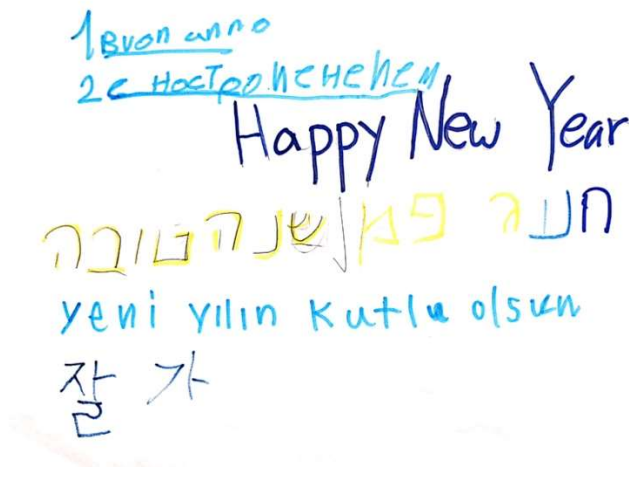 1 Buon anno
2 с ностро
Happy New Year
שנה טובה
yeni yılın kutlu olsun
잘 가